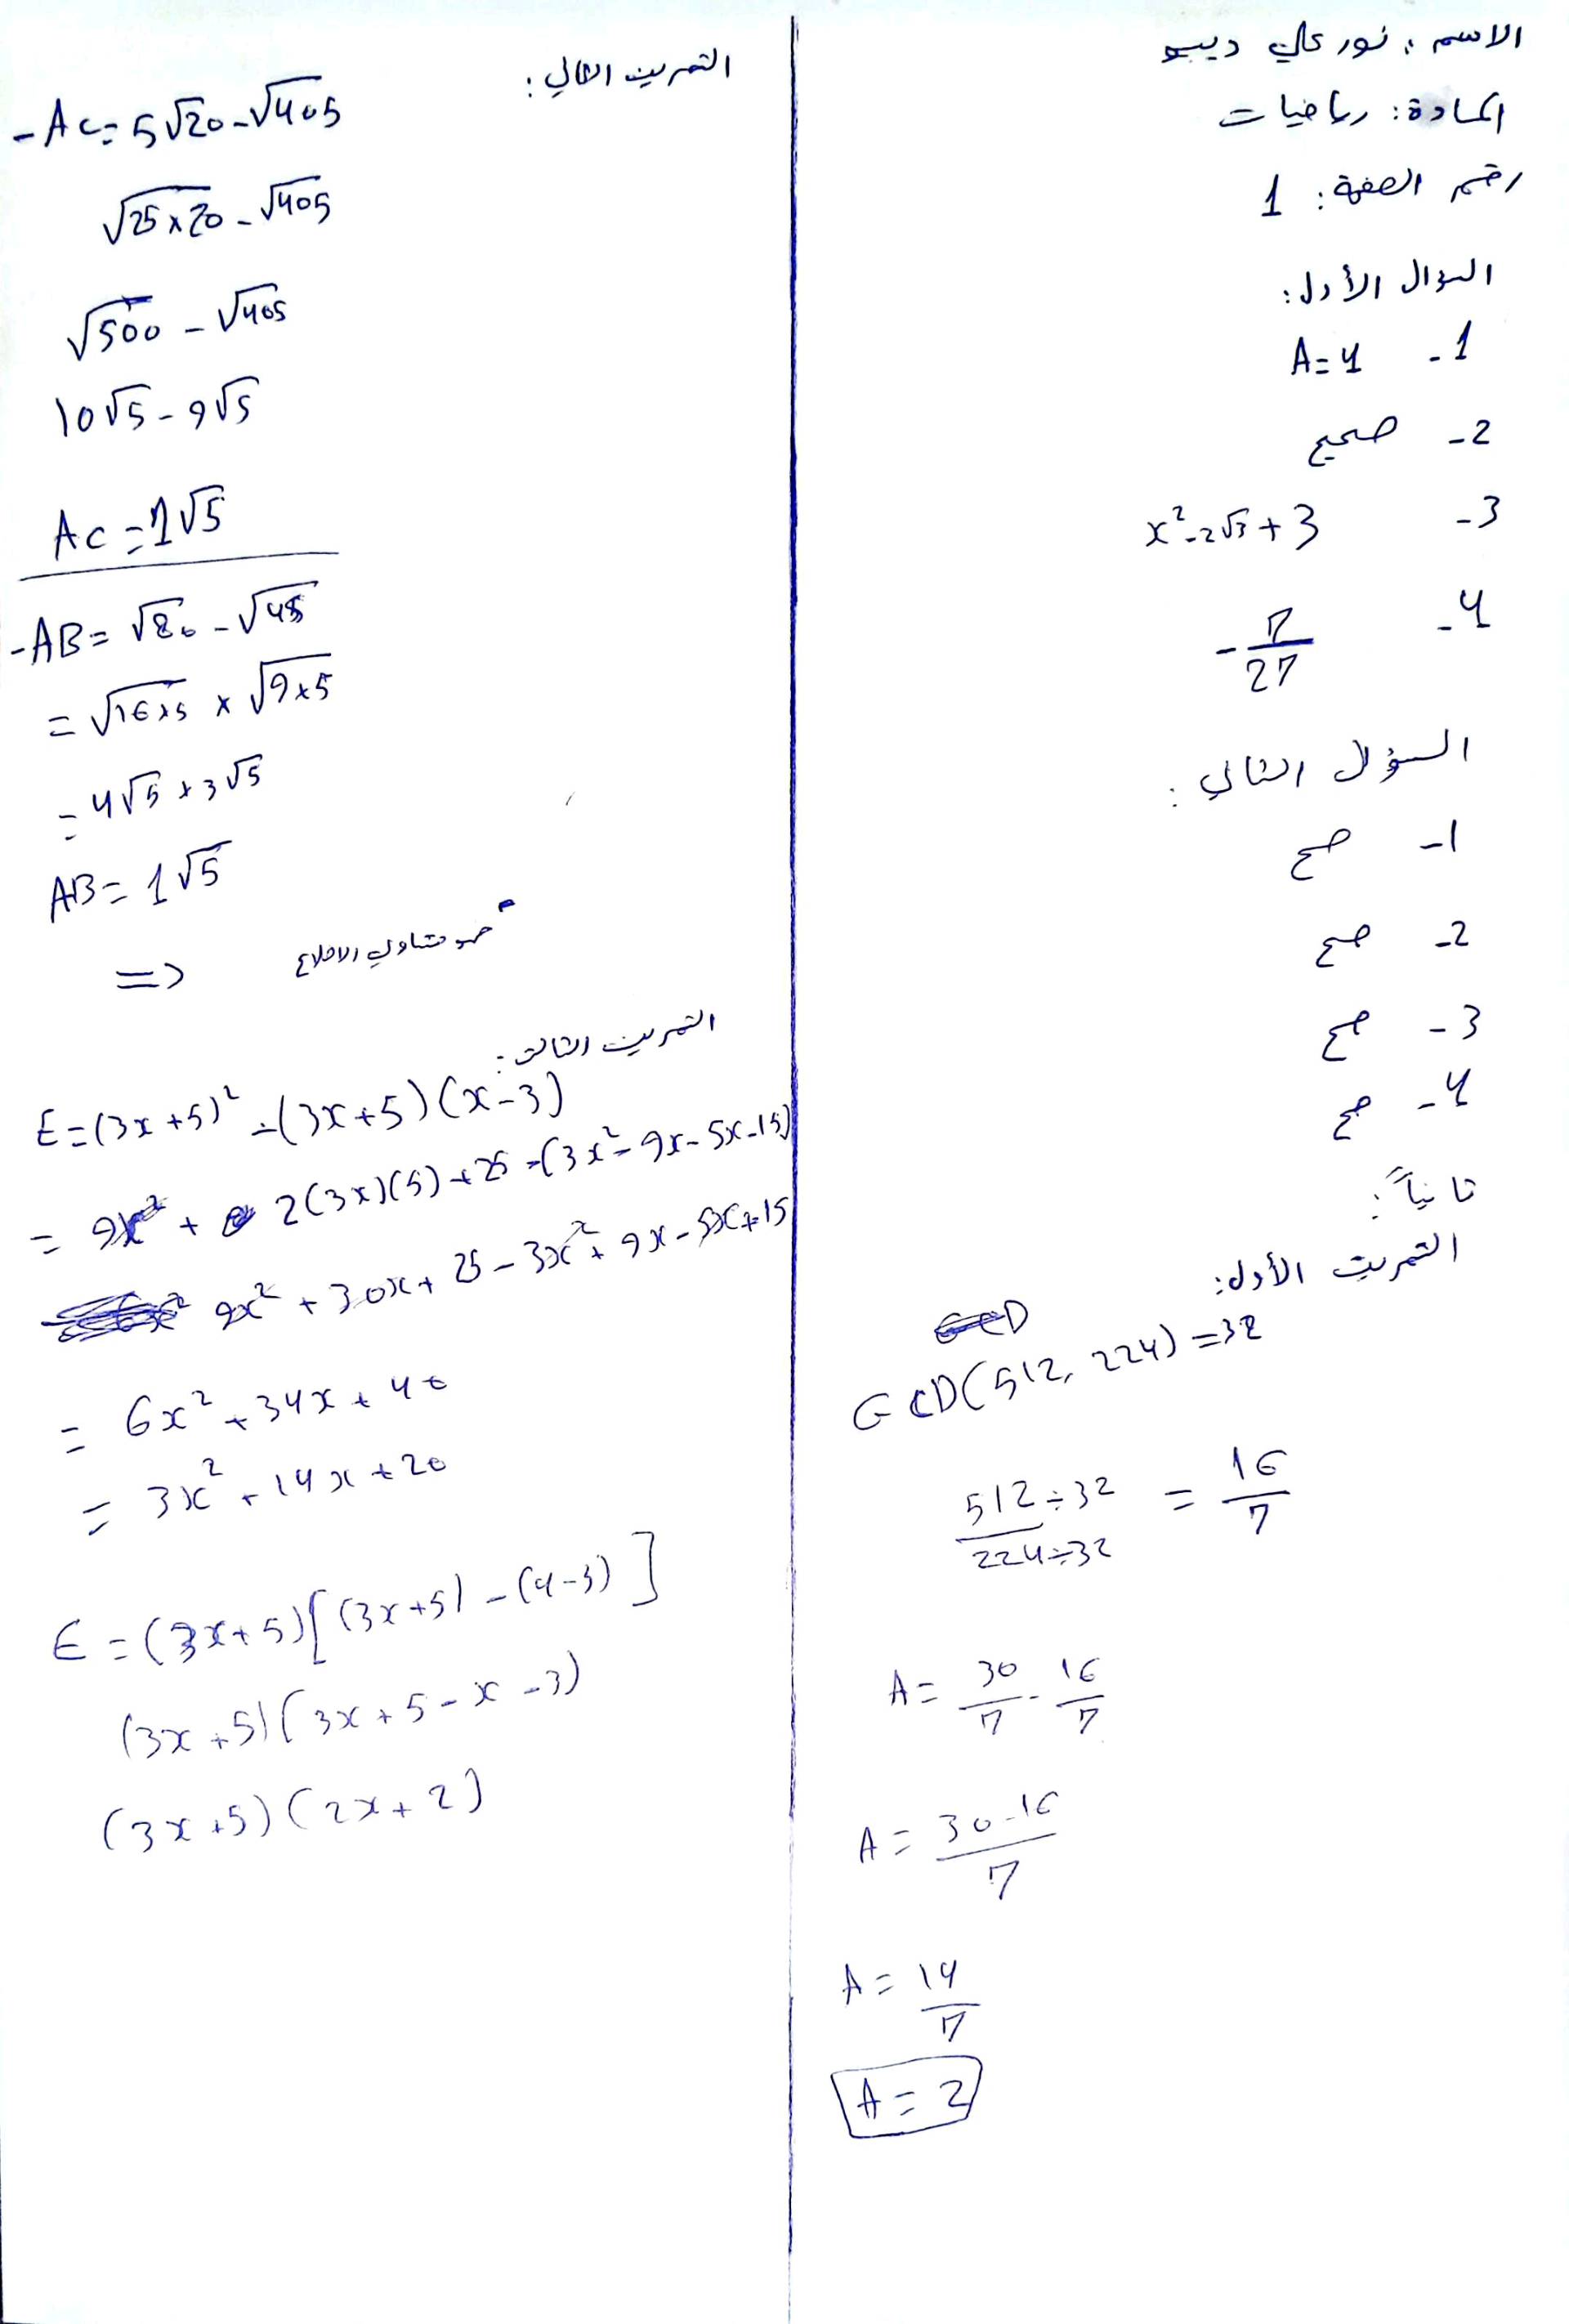 الاسم: نور علي ديبو
المادة: رياضيات
رقم الصفحة: 1
السؤال الأول:
1- A=4
2- صحيح
3- x²-2√3+3
4- -7/27
السؤال الثاني:
1- صح
2- صح
3- صح
4- صح
ثانياً:
التمرين الأول:
GCD(512, 224)=32
512÷32/224÷32 = 16/7
A= 30/7 - 16/7
A= 30-16/7
A= 14/7
A=2
التمرين الثاني:
-AC= 5√20-√405
√25×20 - √405
√500 - √405
10√5-9√5
AC=1√5
-AB= √80-√45
= √16×5 × √9×5
= 4√5 × 3√5
AB= 1√5
=> متساوي الاضلاع
التمرين الثالث:
E=(3x+5)²-(3x+5)(x-3)
= 9x² + 2(3x)(5)+25-(3x²-9x-5x-15)
9x²+30x+25-3x²+9x-5x+15
= 6x²+34x+40
= 3x²+14x+20
E=(3x+5)[(3x+5)-(x-3)]
(3x+5)(3x+5-x-3)
(3x+5)(2x+2)